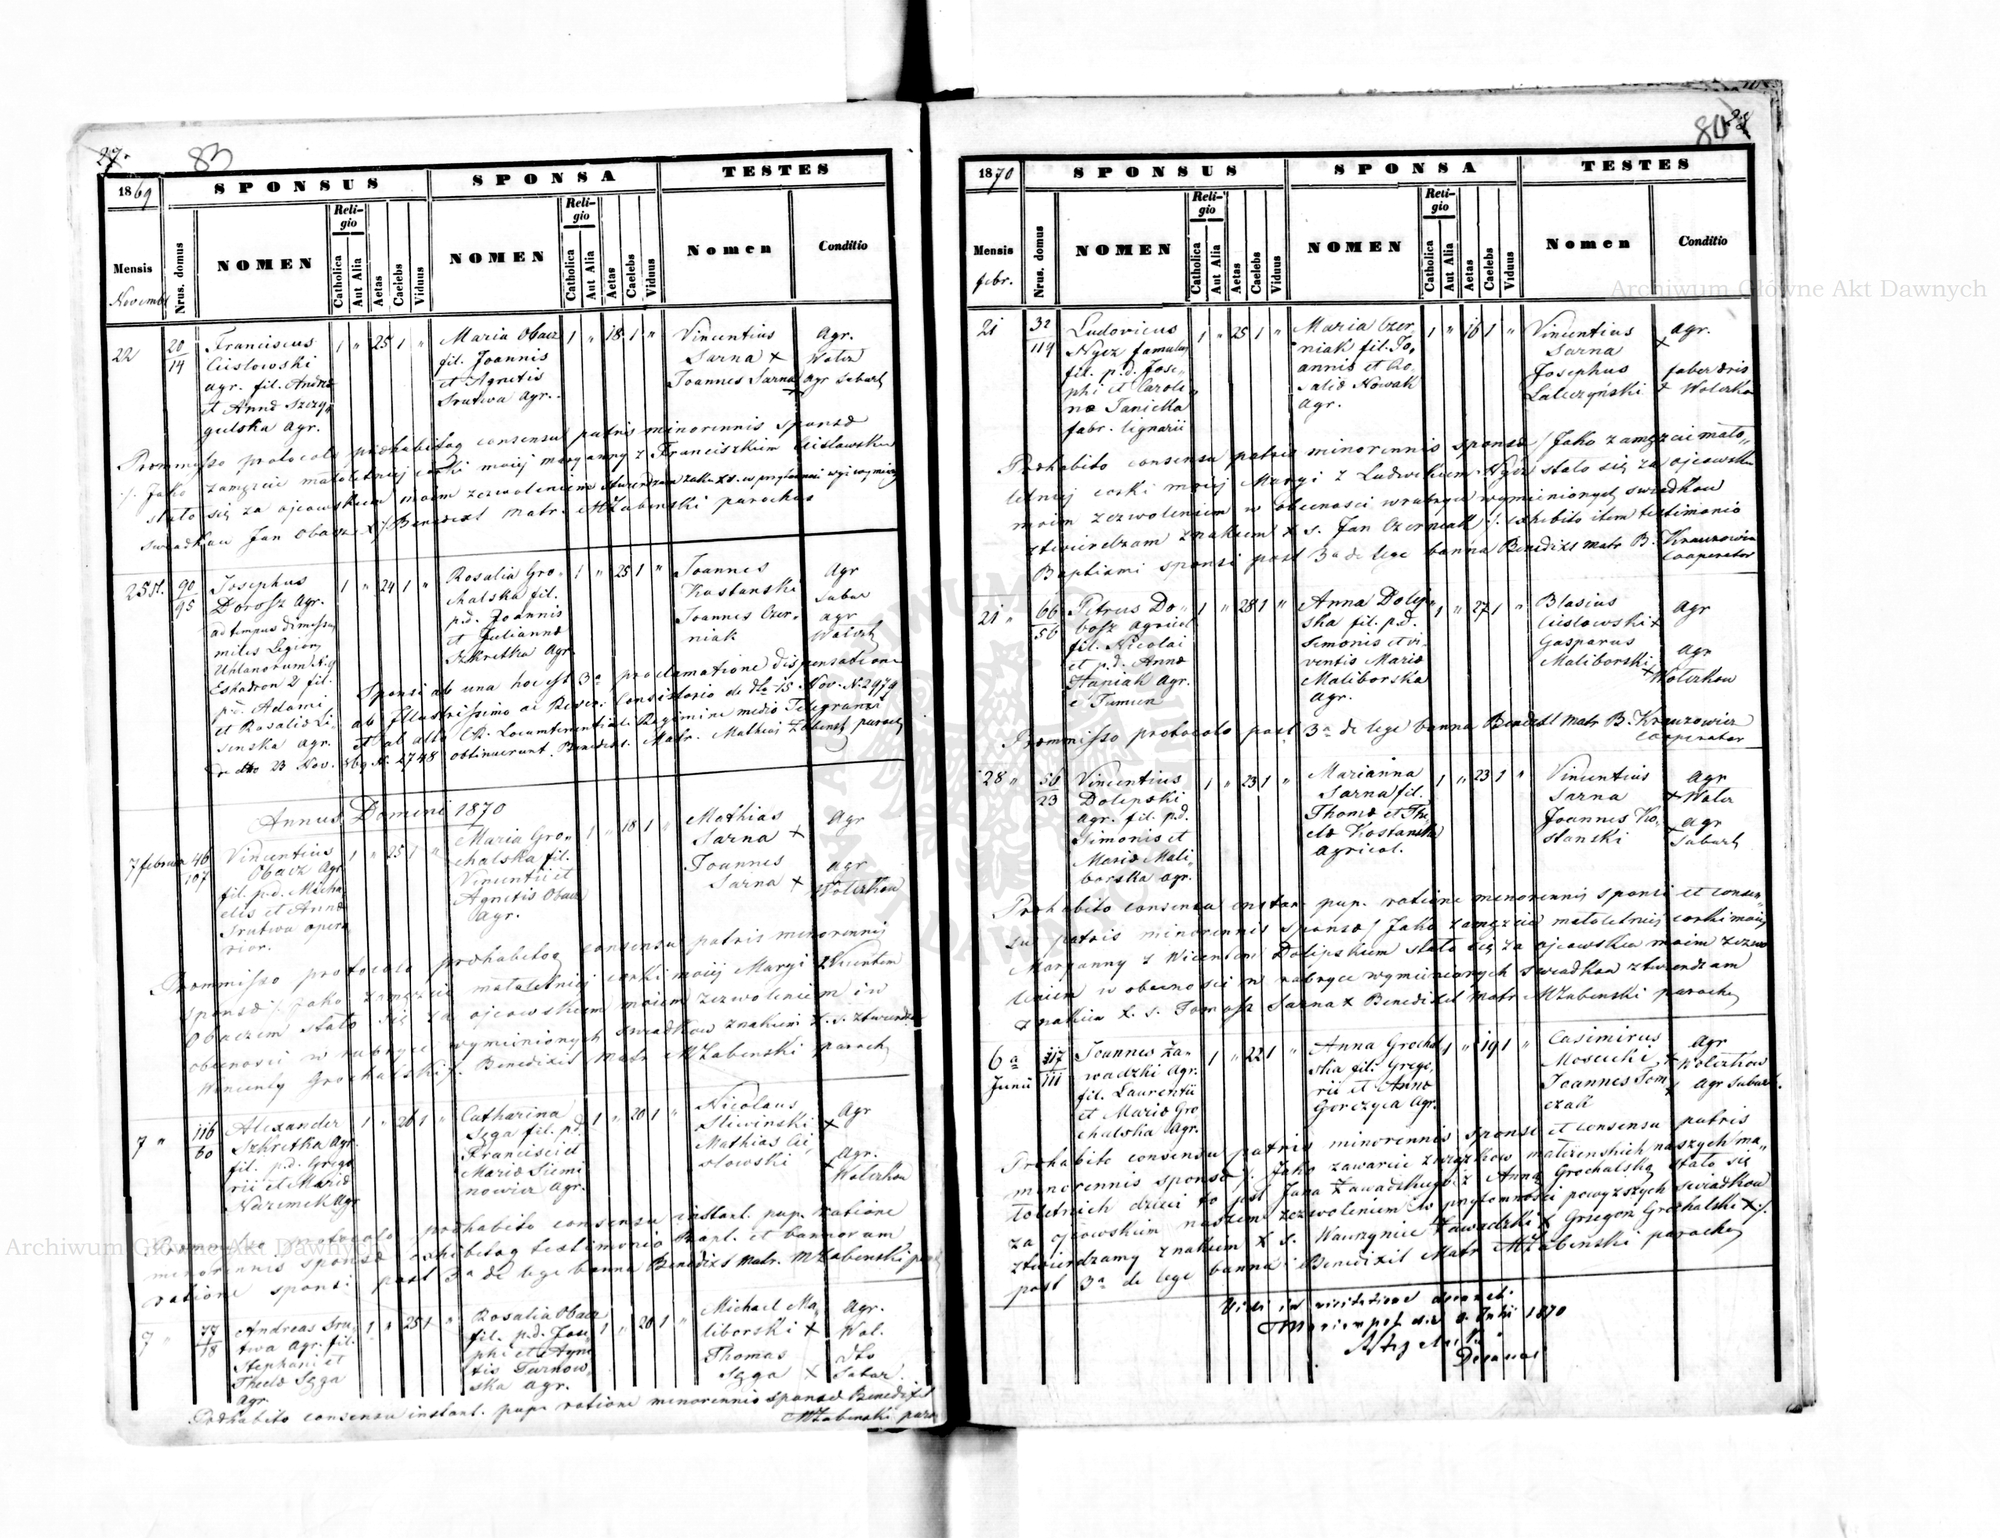 27.
83
1869
SPONSUS
SPONSA
TESTES
Mensis
Novembr
Nrus. domus
NOMEN
Religio
Catholica
Aut Alia
Aetas
Caelebs
Viduus
NOMEN
Religio
Catholica
Aut Alia
Aetas
Caelebs
Viduus
Nomen
Conditio
22
20
14
Franciscus
Cisłowski
agr. fil. Andreæ
et Annæ Szczy
gulska agr.
1 " 25 1 "
Maria Obacz
fil. Joannis
et Agnetis
Srutwa agr.
1 " 18 1 "
Vincentius
Sarna +
Joannes Sarna
Agr.
Wolcz
agr Subart
Præmisso protocolo præhabitoq consensu patris minorennis sponsæ
/. Jako zamęzcie małoletniej corki moiej maryanny z Franciszkiem Cisłowskim
stało się za ojcowskiem moim zezwoleniem stwierdzam
swiadkow Jan Obacz X /. Benedixit matr. MŻabenski parochus
25 st.
90
95
Josephus
Dorosz Agr.
ad tempus dimissus
miles Legion
Uhlanorum
Eskadron 2 fil.
p.d. Adami
et Rosaliæ Li
senska agr.
1 " 24 1 "
Rosalia Gro-
chalska fil.
p.d. Joannis
et Juliannæ
Szkretka Agr.
1 " 25 1 "
Joannes
Kostanski
Joannes Czer-
niak
Agr
Subar
agr
Wolczk
Sponsi ab una hoc est 3a proclamatione dispensatione
ab Illustrissimo ac Rever. Consistorio de dto 15 Nov. N. 2979
et ab alto C.R. Locumtenentiali Regimine medio Telegrammi
de dto 23 Nov. 869 N. 2748 obtinuerunt. Benedixit Matr. Mathias Żabenski paroch
Annus Domini 1870
7 februar
46
107
Vincentius
Obacz Agr
fil. p.d. Micha
elis et Annæ
Srutwa opera
rior.
1 " 25 1 "
Maria Gro-
chalska fil.
Vincentii et
Agnetis Obacz
agr.
1 " 18 1 "
Mathias
Sarna +
Joannes
Sarna +
Agr
agr
Wolczkow
Præmisso protocolo præhabitoq consensu patris minorennis
sponsæ /. Jako zamęzcie małoletniej corki moiej Maryi z Wicentem
Obaczem stało się za ojcowskiem moiem zezwoleniem in
obecnosci w rubryce wymienionych swiadkow znakiem X. s. ztwierdz
Wincenty Grochalski /. Benedixit matr MŻabenski paroch
7 "
116
60
Alexander
Szkretka Agr
fil. p.d. Grego
rii et Mariæ
Nazimek Agr
1 " 26 1 "
Catharina
Sęga fil. p.d.
Francisci et
Mariæ Siemi
nowicz Agr.
1 " 20 1 "
Nicolaus
Sliwinski
Mathias Ci-
słowski
Agr
+
Agr.
+
Wolczkow
Præmisso protocolo, præhabito consensu instant. pup. ratione
minorennis sponsæ exhibitoq testimonio Bapt. et bannorum
ratione sponsi post 3a de lege banna Benedixit matr. MŻabenski par
7 "
77
18
Andreas Sru-
twa Agr. fil.
Stephani et
Theclæ Sęga
agr
1 " 25 1 "
Rosalia Obacz
fil. p.d. Jose
phi et Agne
tis Turnow
ska agr.
1 " 20 1 "
Michael Ma-
liborski +
Thomas
Sęga +
Agr.
Wol.
dto
Subar.
Præhabito consensu instant. pup. ratione minorennis sponsæ Benedixit
MŻabenski paro
80
28
1870
SPONSUS
SPONSA
TESTES
Mensis
febr.
Nrus. domus
NOMEN
Religio
Catholica
Aut Alia
Aetas
Caelebs
Viduus
NOMEN
Religio
Catholica
Aut Alia
Aetas
Caelebs
Viduus
Nomen
Conditio
21
32
114
Ludovicus
Nycz famulus
fil. p.d. Jose-
phi et Caroli-
næ Janicka
fabr. lignarii
1 " 25 1 "
Maria Czer-
niak fil. Jo-
annis et Ro
saliæ Nowak
agr.
1 " 16 1 "
Vincentius
Sarna
Josephus
Laliczyński
agr.
+
faber
+ Wolczko
Præhabito consensu patris minorennis sponsæ / Jako zamęzcie mało-
letniej corki moiej Maryi z Ludwikiem Nycz stało się za ojcowskim
moim zezwoleniem w obecnosci w rubryce wymienionych swiadkow
ztwierdzam znakiem X. s. Jan Czerniak /. exhibito item testimonio
Baptismi sponsi post 3a de lege banna Benedixit matr B. Krauzowicz
cooperator
21 "
66
56
Petrus Do-
bosz agricol
fil. Nicolai
et p.d. Annæ
Haniak Agr.
e Tumin
1 " 28 1 "
Anna Dolip-
ska fil. p.d.
Simonis et vi-
ventis Mariæ
Maliborska
agr.
1 " 27 1 "
Blasius
Cisłowski +
Gasparus
Maliborski
Agr
agr
+ Wolczkow
Præmmisso protocolo post 3a de lege banna Benedixit Matr B. Krauzowicz
cooperator
28 "
56
23
Vincentius
Dolipski
agr. fil. p.d.
Simonis et
Mariæ Mali-
borska agr.
1 " 23 1 "
Marianna
Sarna fil.
Thomæ et The
clæ Kostanska
Agricol.
1 " 23 1 "
Vincentius
Sarna
Joannes Ko-
stanski
agr
+ Wolcz
agr
+
Subart
Præhabito consensu instan. pup. ratione minorennis sponsi et consen-
su patris minorennis sponsæ / Jako zamęzcie małoletniej corki moiej
Maryanny z Wicentem Dolipskiem stało się za ojcowskiem moim zezwo
leniem w obecnosci w rubryce wymienionych swiadkow ztwierdzam
znakiem X. s. Tomasz Sarna X Benedixit Matr MŻabenski paroch
6a
Junii
117
111
Joannes Za-
wadzki Agr.
fil. Laurentii
et Mariæ Gro
chalska Agr.
1 " 22 1 "
Anna Grocha
lska fil. Grego
rii et Annæ
Gorczyca Agr.
1 " 19 1 "
Casimirus
Moscicki
Joannes Tom
czak
Agr
+ Wolczkow
+ Agr Subart.
Præhabito consensu patris minorennis sponsi et consensu patris
minorennis sponsæ /. Jako zawarcie związkow małzenskich naszych ma-
łoletnich dzieci to jest Jana Zawadzkiego z Anną Grochalską stało się
za ojcowskim naszem zezwoleniem w przytomnosci powyzszych swiadkow
ztwierdzamy znakiem X. s. Wawrzyniec Zawadzki X Grzegorz Grochalski X /.
post 3a de lege banna Benedixit Matr MŻabenski paroch
Vidi in visitatione decanali
Mariempol die 8. Julii 1870
Decanus
Archiwum Główne Akt Dawnych
Archiwum Główne Akt Dawnych